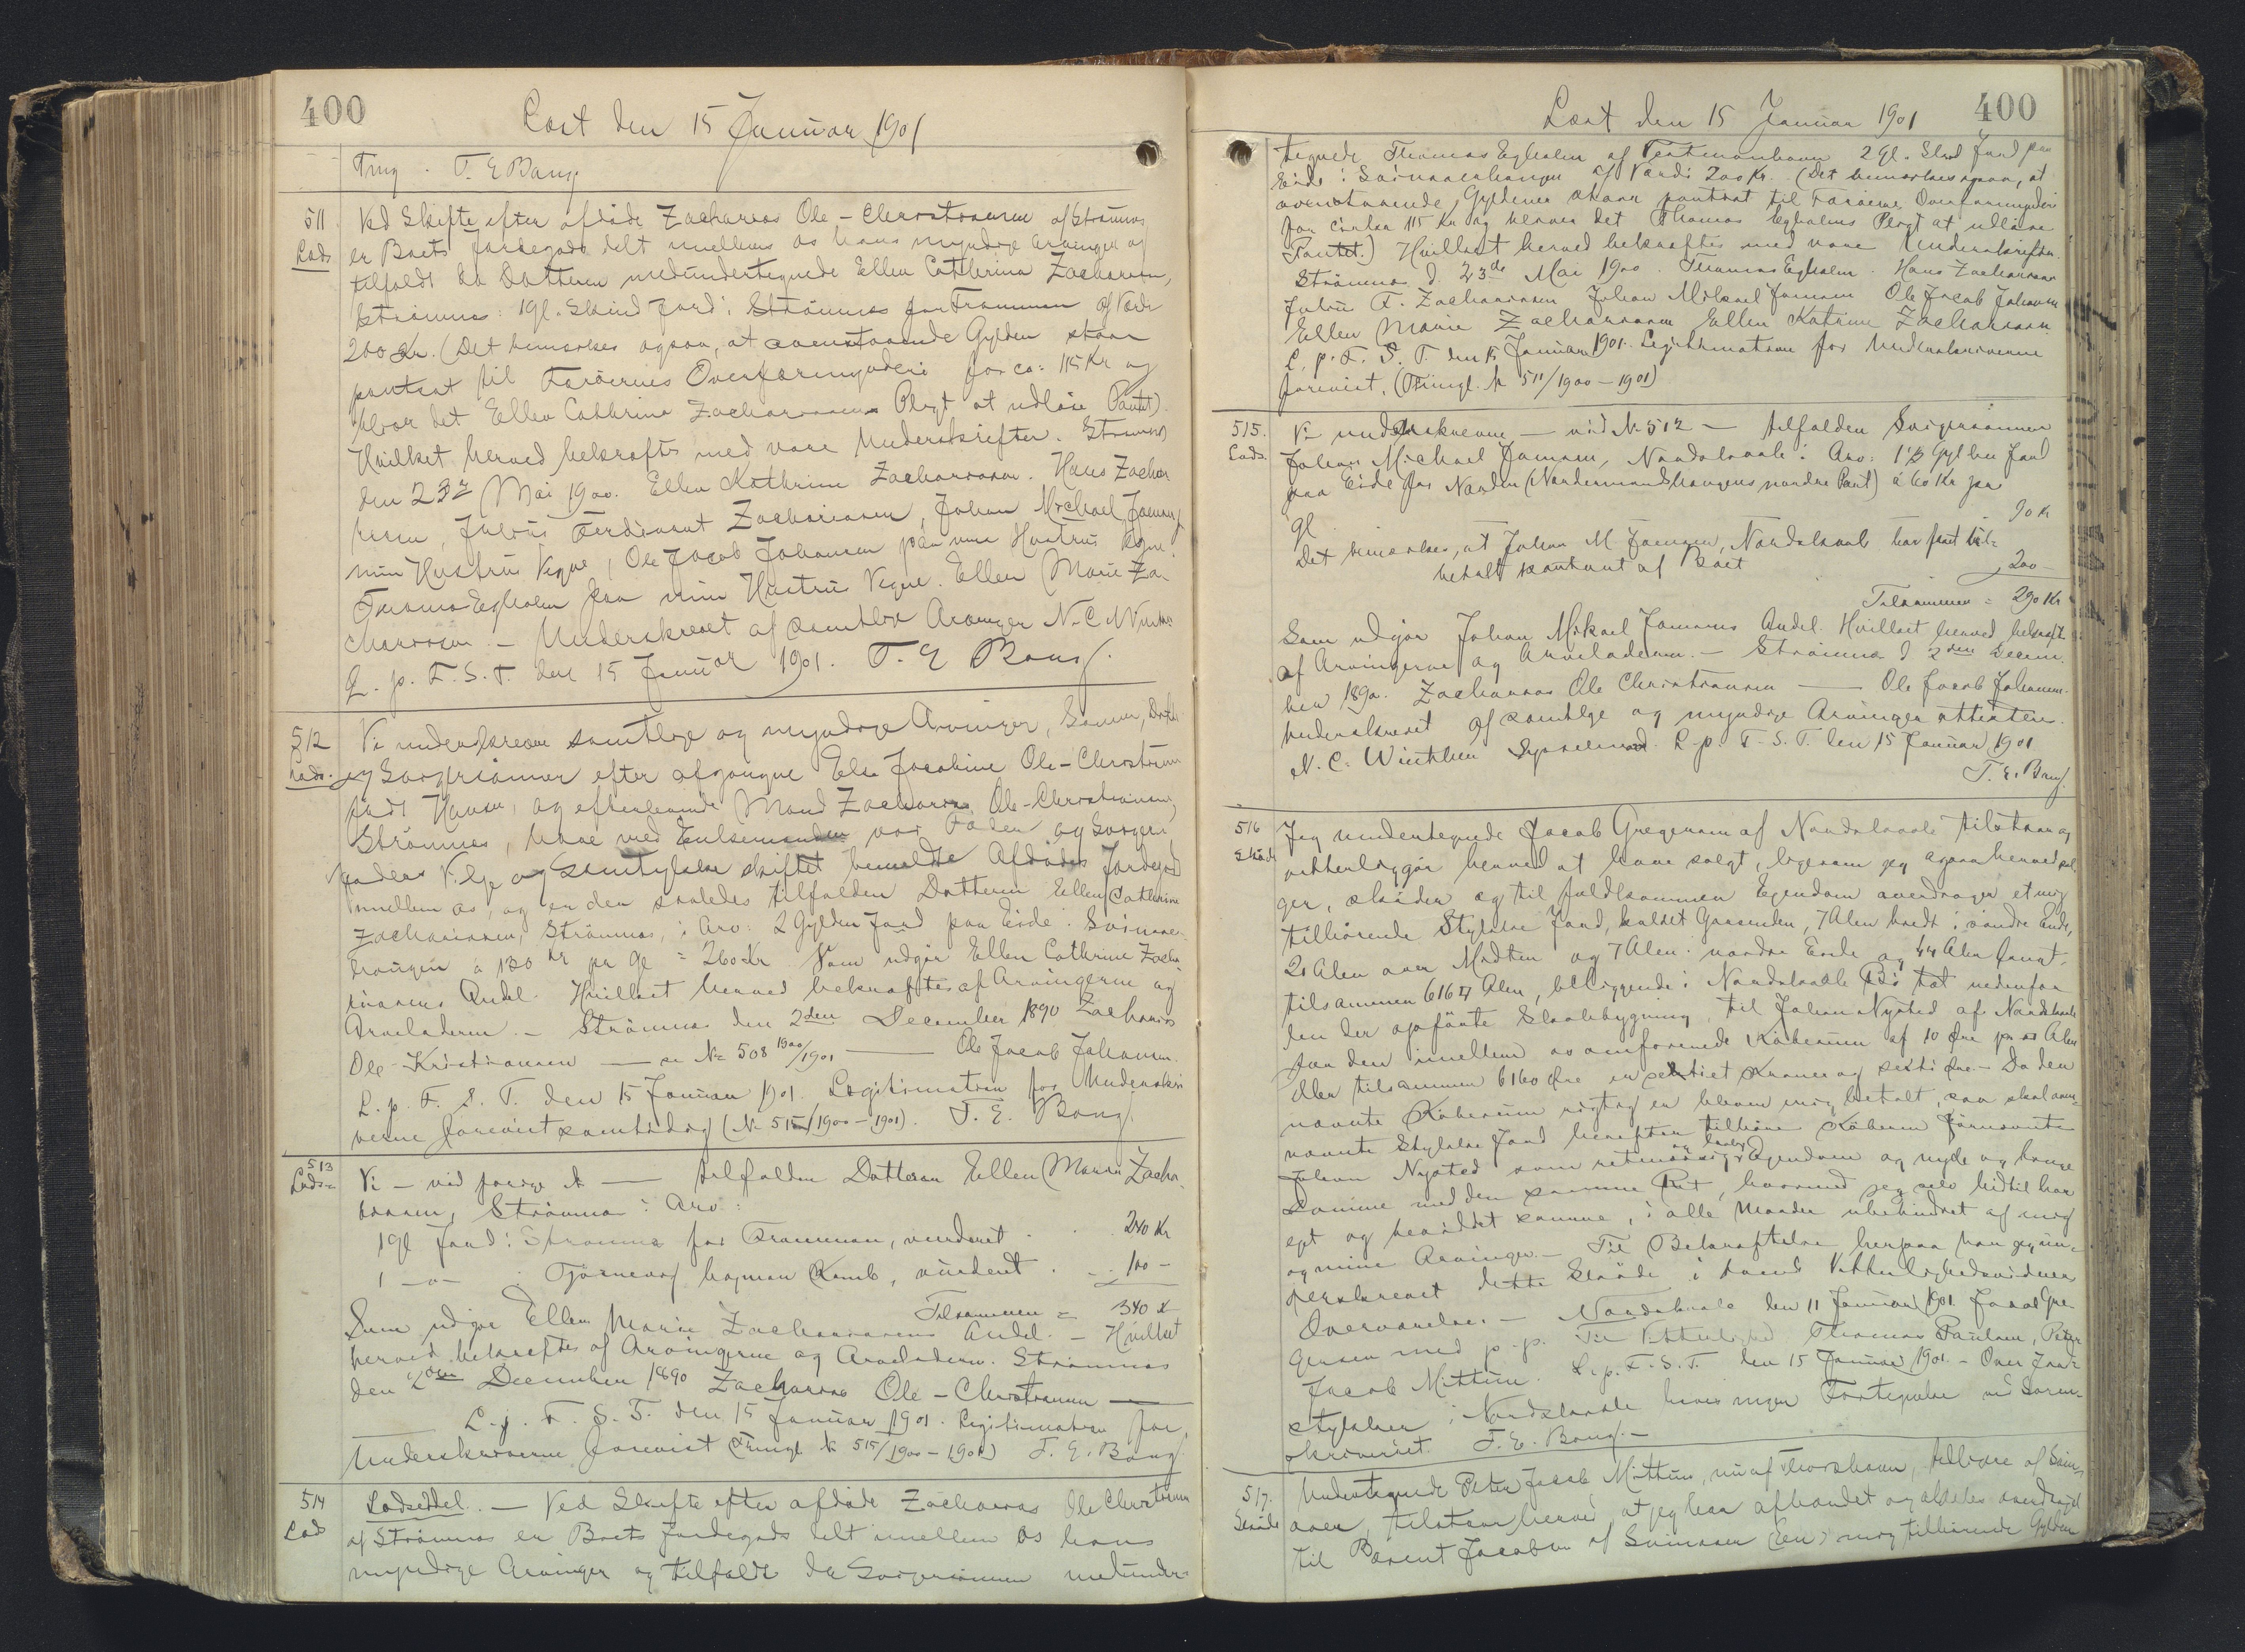 400
Læst den 15 Januar 1901
Ting. T. E Bang.
511
Lods
Ved Skifte efter afdøde Zacharias Ole-Christiansen af Strømnæs
er Boets Jordegods delt imellem os hans myndige Arvinger og
tilfaldt da Datteren medundertegnede Ellen Cathrina Zachariasen,
Strømnæs: 1 Gl. Skind Jord i Strømnæs for Frammen af Værdi
200 Kr. (Det bemærkes ogsaa, at ovenstaaende Gylden staar
pantsat til Færøernes Overformynderi for ca: 115 Kr og
bliver det Ellen Cathrina Zachariasens Pligt at udløse Pantet).
Hvilket herved bekræftes med vore Underskrifter. Strømnæs
den 23de Mai 1900. Ellen Kathrine Zachariasen. Hans Zacha-
riasen, Julius Ferdinant Zachariasen, Johan Michael Joensen
min Hustrus Vegne, Ole Jacob Johansen paa min Hustrus Vegne.
Thomas Egholm paa min Hustrus Vegne. Ellen Marie Za-
chariasen. - Underskrevet af samtlige Arvinger N. C. Winther
L. p. F. S. T. den 15 Januar 1901. T. E Bang.
512
Lods.
Vi underskrevne samtlige og myndige Arvinger, Sønner, Døtre
og Svigersønner efter afgangne Else Jacobine Ole-Christiansen
født Hansen, og efterlevende Mand Zacharias Ole-Christiansen,
Strømnæs, have med Enkemanden vor Fader og Sviger-
faders Vilje og Samtykke skiftet bemeldte Afdødes Jordegods
imellem os, og er der saaledes tilfalden Datteren Ellen Cathrine
Zachariasen, Strømnæs, i Arv: 2 Gylden Jord paa Eide i Svinaa-
haugen à 130 Kr pr Gl = 260 Kr. Som udgør Ellen Cathrine Zacha-
riasens Andel. Hvilket herved bekræftes af Arvingerne og
Arveladeren. - Strømnæs den 2den December 1890 Zacharias
Ole-Kristiansen — se № 508 1900/1901 — Ole Jacob Johansen.
L. p. F. S. T. den 15 Januar 1901. Legitimation for Underskri-
verne forevist samtidig (№ 515/1900-1901). T. E. Bang.
513
Lods-
Vi - vid forrige № — tilfalden Datteren Ellen Marie Zacha-
riasen, Strømnæs i Arv:
1 Gl Jord i Strømnæs for Frammen, vurderet . . 240 Kr
1 -o- i Tjørnevig , vurderet . . 100 -
Tilsammen = 340 K
Som udgør Ellen Marie Zachariasens Andel. - Hvilket
herved bekræftes af Arvingerne og Arveladeren. Strømnæs
den 2den December 1890 Zacharias Ole-Christiansen —
L. p. F. S. T. den 15 Januar 1901. Legitimation for
Underskriverne forevist (Tingl. № 515/1900-1901) T. E. Bang
514
Lods
Lodseddel. — Ved Skifte efter afdøde Zacharias Ole Christiansen
af Strømnæs er Boets Jordegods delt imellem os hans
myndige Arvinger og tilfaldt da Svigersønnen medunder-
Læst den 15 Januar 1901
400
tegnede Thomas Egholm af Vestmanhavn 2 Gl. Skind Jord paa
Eide i Svinaaerhaugen af Værdi 200 Kr. (Det bemærkes ogsaa, at
ovenstaaende Gyldener staar pantsat til Færøerne Overformynderi
for cirka 115 Kr og bliver det Thomas Egholms Pligt at udløse
Pantet.) Hvilket herved bekræftes med vore Underskrifter.
Strømnæs d 23de Mai 1900. Thomas Egholm. Hans Zachariasen
Julius F. Zachariasen Johan Mikael Joensen Ole Jacob Johansen
Ellen Marie Zachariasen Ellen Katrine Zachariasen.
L. p. F. S. T. den 15 Januar 1901. Legitimation for Underskriverne
forevist. (Tingl. № 511/1900-1901)
515.
Lods.
Vi underskrevne — vid № 512 — tilfalden Svigersønnen
Johan Michael Joensen, Nordskaale i Arv: 1½ Gylden Jord
paa Eide for Norden (Nordermandshaugens nordre Part) à 60 Kr pr
Gl 90 Kr
Det bemærkes, at Johan M Joensen, Nordskaale har faat ud-
betalt kontant af Boet 200 -
Tilsammen = 290 Kr
Som udgør Johan Mikael Joensens Andel. Hvilket herved bekræft.
af Arvingerne og Arveladeren. - Strømnæs d 2den Decem-
ber 1890. Zacharias Ole Christiansen — Ole Jacob Johansen.
Underskrevet af samtlige og myndige Arvinger attesteres.
N. C. Winther Sysselmand. L. p. F. S. T. den 15 Januar 1901
T. E. Bang.
516
Skøde
Jeg undertegnede Jacob Gregersen af Nordskaale tilstaar og
vitterliggør herved at have solgt, ligesom jeg ogsaa herved sæl-
ger, skøder og til fuldkommen Egendom overdrager et mig
tilhørende Stykke Jord, kaldet Grasenden, 7 Alen bredt i søndre Ende,
21 Alen over Midten og 7 Alen i nordre Ende og 44 Alen langt,
tilsammen 616 □ Alen, beliggende i Nordskaale Bø tæt nedenfor
den der opførte Skolebygning, til Johan Nysted af Nordskaale
for den imellem os omforenede Købesum af 10 Øre pr □ Alen
eller tilsammen 6160 Øre er sextiet Kroner og sexti Øre. - Da den
nævnte Købesum rigtig er bleven mig betalt, saa skal oven-
nævnte Stykke Jord herefter tilhøre Køberen førnævnte
Johan Nysted som retmæssig og lovlig Egendom og nyde og bruge
Samme med den samme Ret, hvormed jeg selv hidtil har
ejet og besiddet samme, i alle Maader ubehindret af mig
og mine Arvinger. - Til Bekræftelse herpaa har jeg un-
derskrevet dette Skøde i tvende Vitterlighedsvidners
Overværelse. - Nordskaale den 11 Januar 1901. Jacob Gre-
gersen med p. p. Til Vitterlighed Thomas Paulsen, Peter
Jacob Mittun. L. p. F. S. T. den 15 Januar 1901. - Over Jord-
stykker i Nordskaale haves ingen Fortegnelse ved Soren-
skriveriet. T. E. Bang. -
517.
Skøde
Undertegnede Peter Jacob Mittun, nu af Thorshavn, tidligere af Svin-
aaer, tilstaar herved, at jeg har afhændet og aldeles overdraget
til Berent Jacobsen af Svinaaer (en) mig tilhørende Gylden